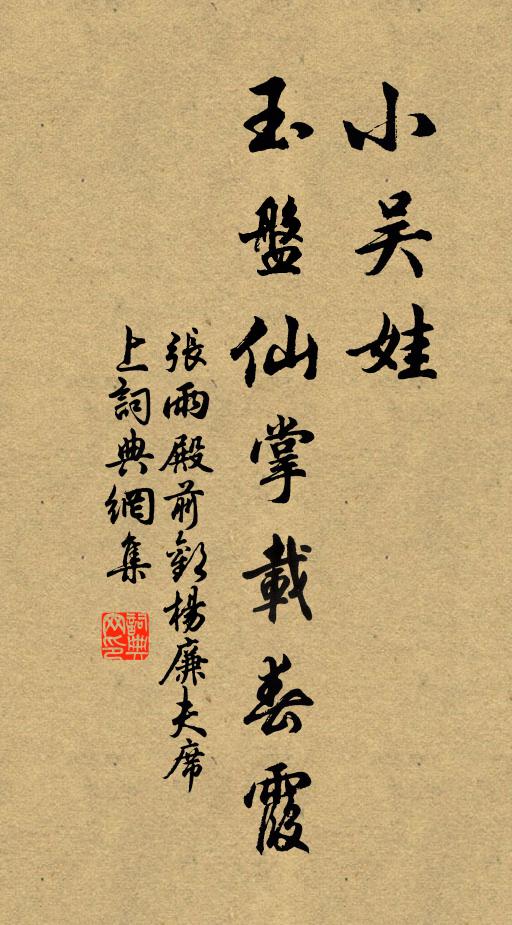 小吴娃
玉盤仙掌載春霞
張雨殿前歡楊廉夫席
上詞典網集
詞典網印